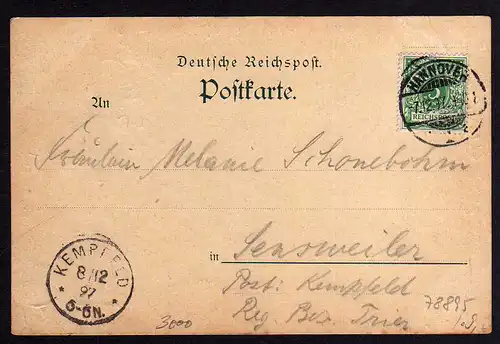 Deutsche Reichspost.
Postkarte.
An
HANNOVER
REICHSPOST
Fräulein Melanie Schönebohm
in Sensweiler
Post: Kempfeld
Reg. Bez. Trier
KEMPFELD
8/12
97
6-6N.
3000
78895